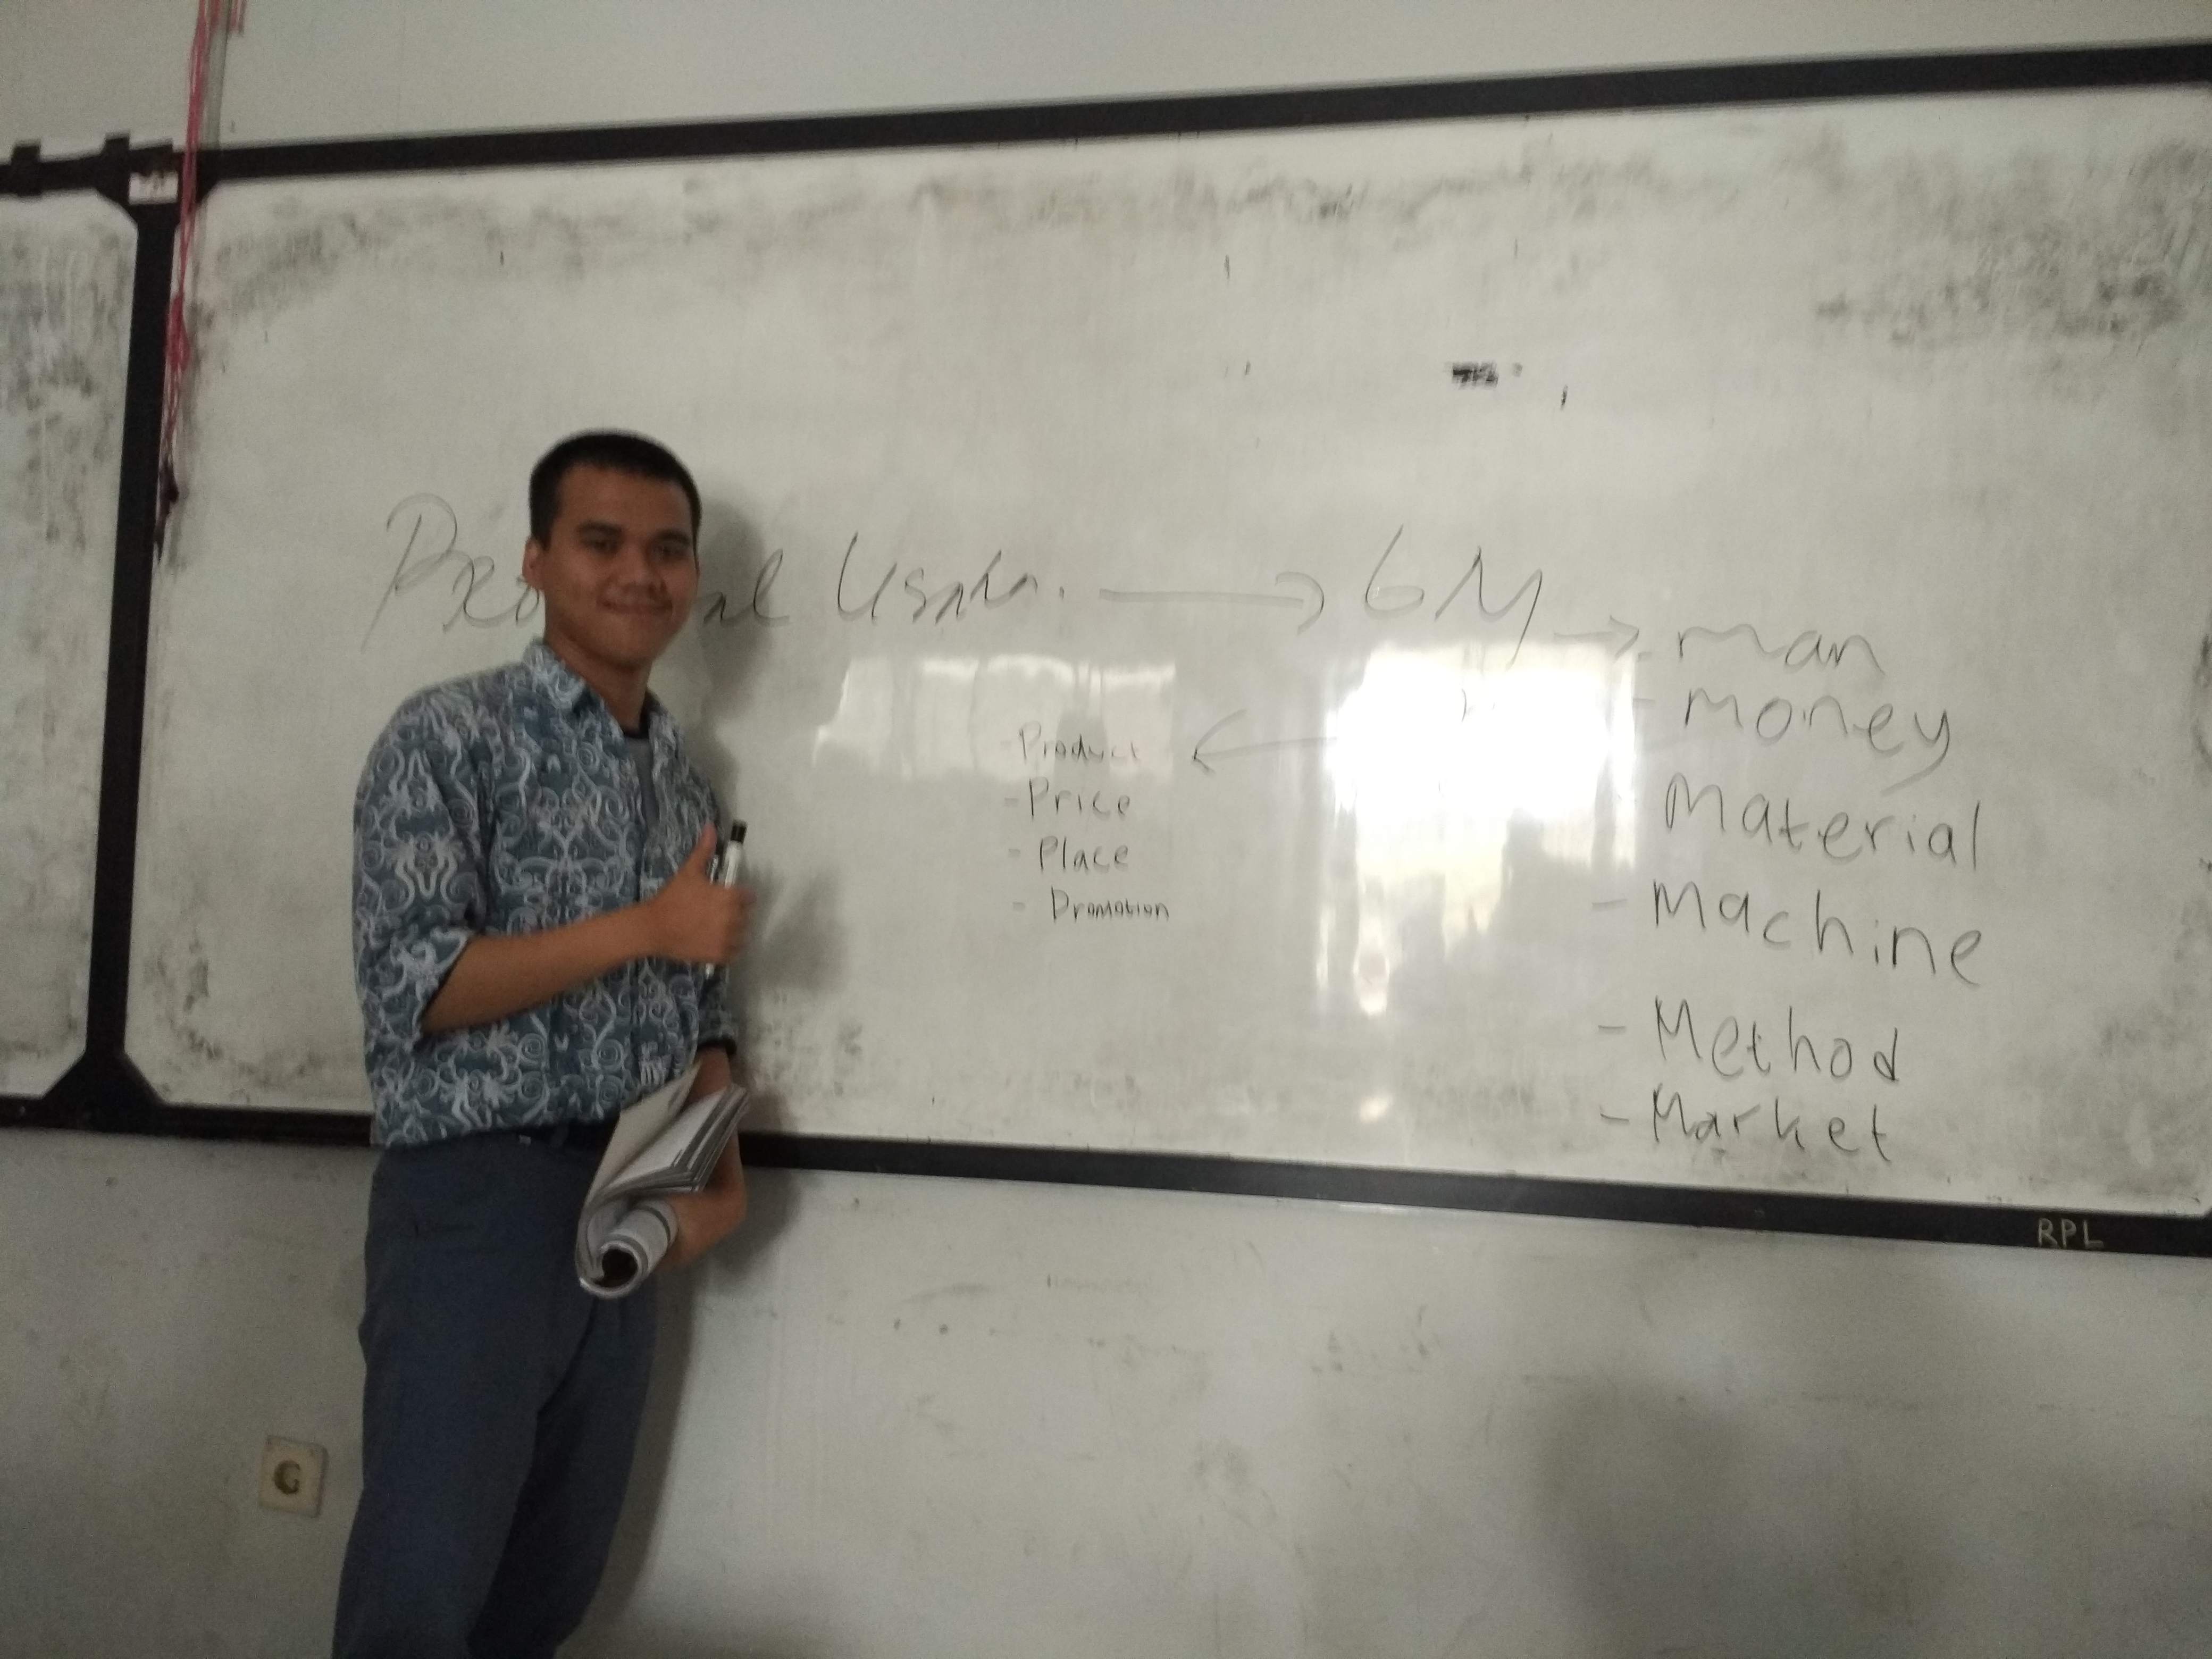 Usaha. → 6M → - man
- money
Material
- Machine
- Method
- Market
- Product
- Price
- Place
- Promotion
RPL